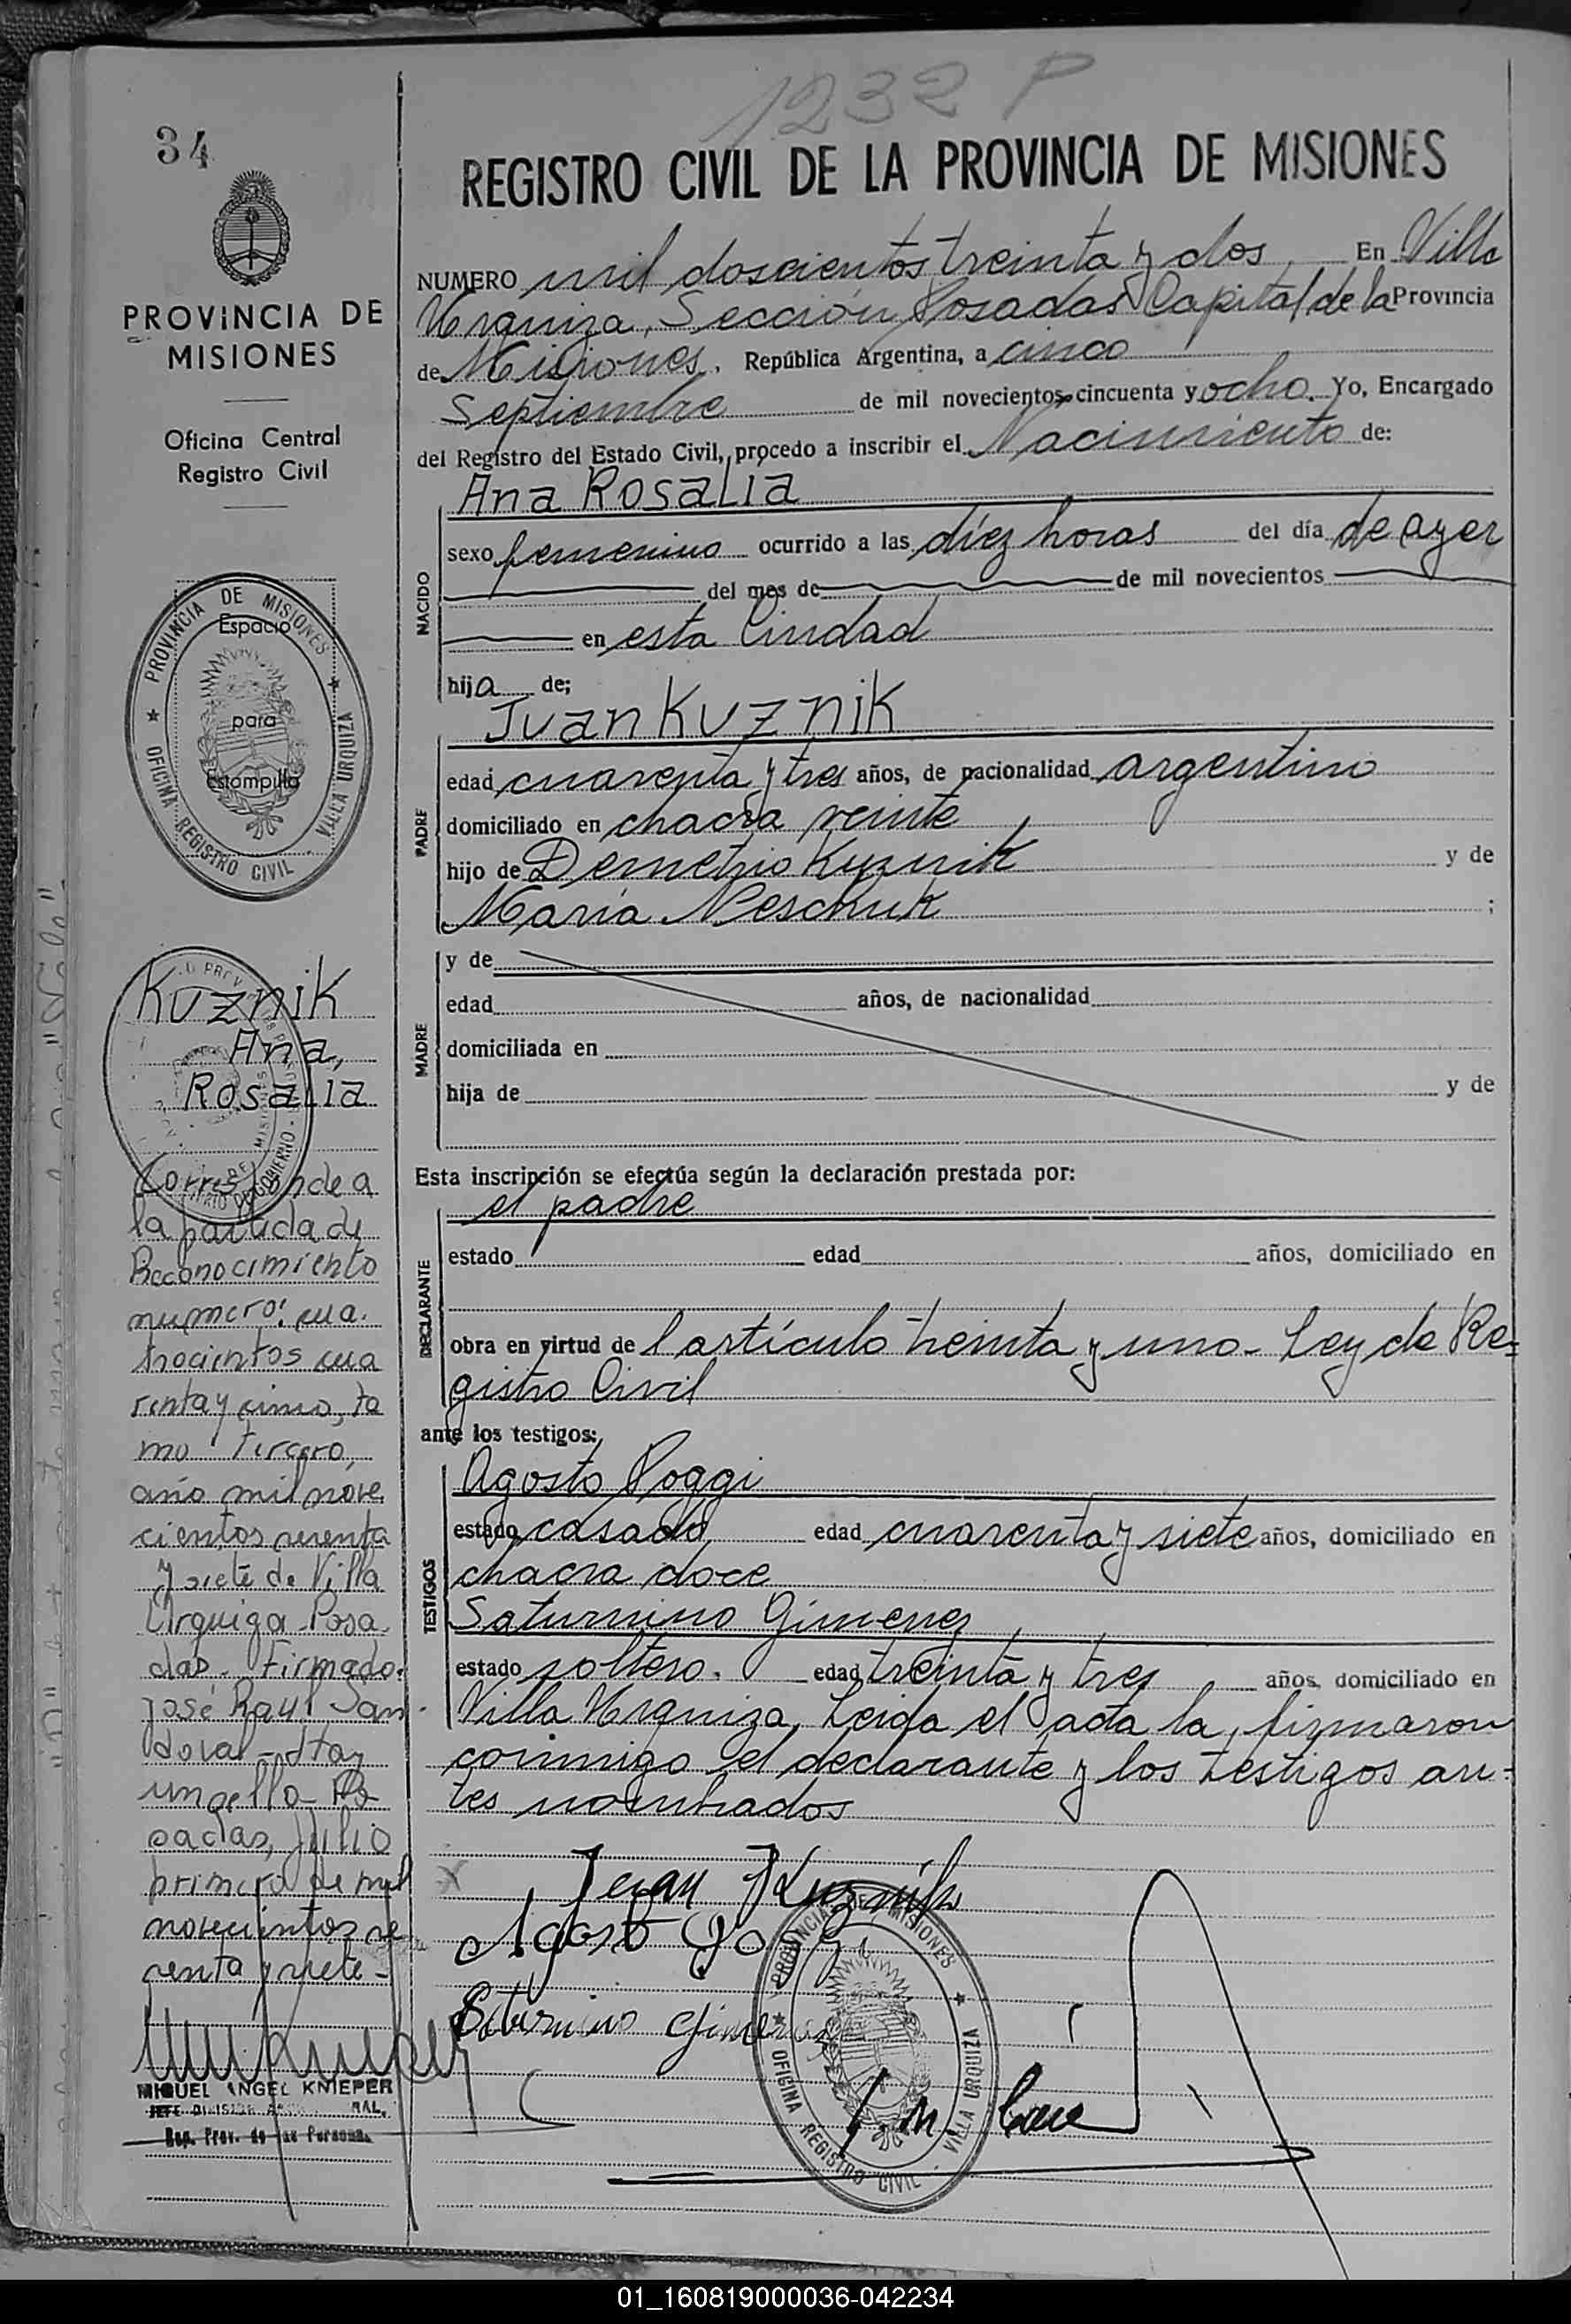 1232 P
34
REGISTRO CIVIL DE LA PROVINCIA DE MISIONES
PROVINCIA DE
MISIONES
Oficina Central
Registro Civil
PROVINCIA DE MISIONES
Espacio
para
Estampilla
OFICINA REGISTRO CIVIL - VILLA URQUIZA
Kuznik
Ana,
Rosalia
Corresponde a
la partida de
Reconocimiento
numero: cua
trocientos cua
renta y cinco, to
mo tercero,
año mil nove
cientos sesenta
y siete de Villa
Urquiza - Posa
das. Firmado.
José Raul San
doval - Hay
un sello - Po
sadas, Julio
primero de mil
novecientos se
senta y siete -
MIGUEL ANGEL KNIEPER
JEFE DIVISION
Rep. Prov. de las Personas
NUMERO mil doscientos treinta y dos En Villa
Urquiza, Sección Posadas Capital de la Provincia
de Misiones, República Argentina, a cinco
Septiembre de mil novecientos cincuenta y ocho. Yo, Encargado
del Registro del Estado Civil, procedo a inscribir el Nacimiento de:
Ana Rosalia
NACIDO
sexo femenino ocurrido a las diez horas del día de ayer
del mes de de mil novecientos
en esta Ciudad
hija de;
Juan Kuznik
PADRE
edad cuarenta y tres años, de nacionalidad argentino
domiciliado en chacra veinte
hijo de Demetrio Kuznik y de
Maria Meschuk ;
MADRE
y de
edad años, de nacionalidad
domiciliada en
hija de y de
Esta inscripción se efectúa según la declaración prestada por:
el padre
DECLARANTE
estado edad años, domiciliado en
obra en virtud de l artículo treinta y uno - Ley de Re=
gistro Civil
ante los testigos:
Agosto Poggi
TESTIGOS
estado casado edad cuarenta y siete años, domiciliado en
chacra doce
Saturnino Gimenez
estado soltero. edad treinta y tres años, domiciliado en
Villa Urquiza, Leida el acta la, firmaron
conmigo el declarante y los testigos an=
tes nombrados
Juan Kuznik
Agosto Poggi
Saturnino Gimenez
PROVINCIA DE MISIONES
OFICINA REGISTRO CIVIL - VILLA URQUIZA
01_160819000036-042234